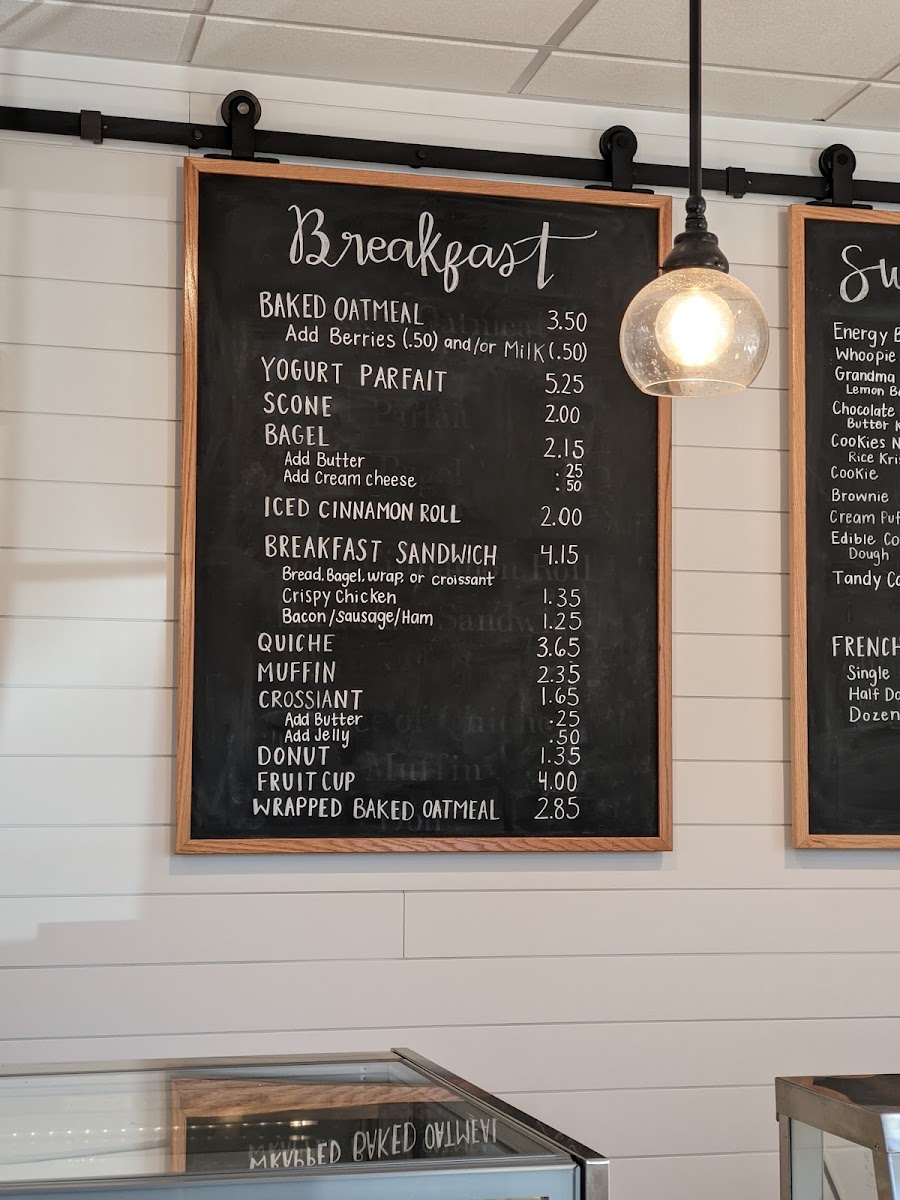 Breakfast
BAKED OATMEAL 3.50
Add Berries (.50) and/or Milk (.50)
YOGURT PARFAIT 5.25
SCONE 2.00
BAGEL 2.15
Add Butter .25
Add Cream cheese .50
ICED CINNAMON ROLL 2.00
BREAKFAST SANDWICH 4.15
Bread, Bagel, wrap, or croissant
Crispy Chicken 1.35
Bacon/Sausage/Ham 1.25
QUICHE 3.65
MUFFIN 2.35
CROSSIANT 1.65
Add Butter .25
Add Jelly .50
DONUT 1.35
FRUIT CUP 4.00
WRAPPED BAKED OATMEAL 2.85
Energy
Whoopie
Grandma
Lemon
Chocolate
Butter
Cookies
Rice
Cookie
Brownie
Cream
Edible
Dough
Tandy
FRENCH
Single
Half
Dozen
WRAPPED BAKED OATMEAL